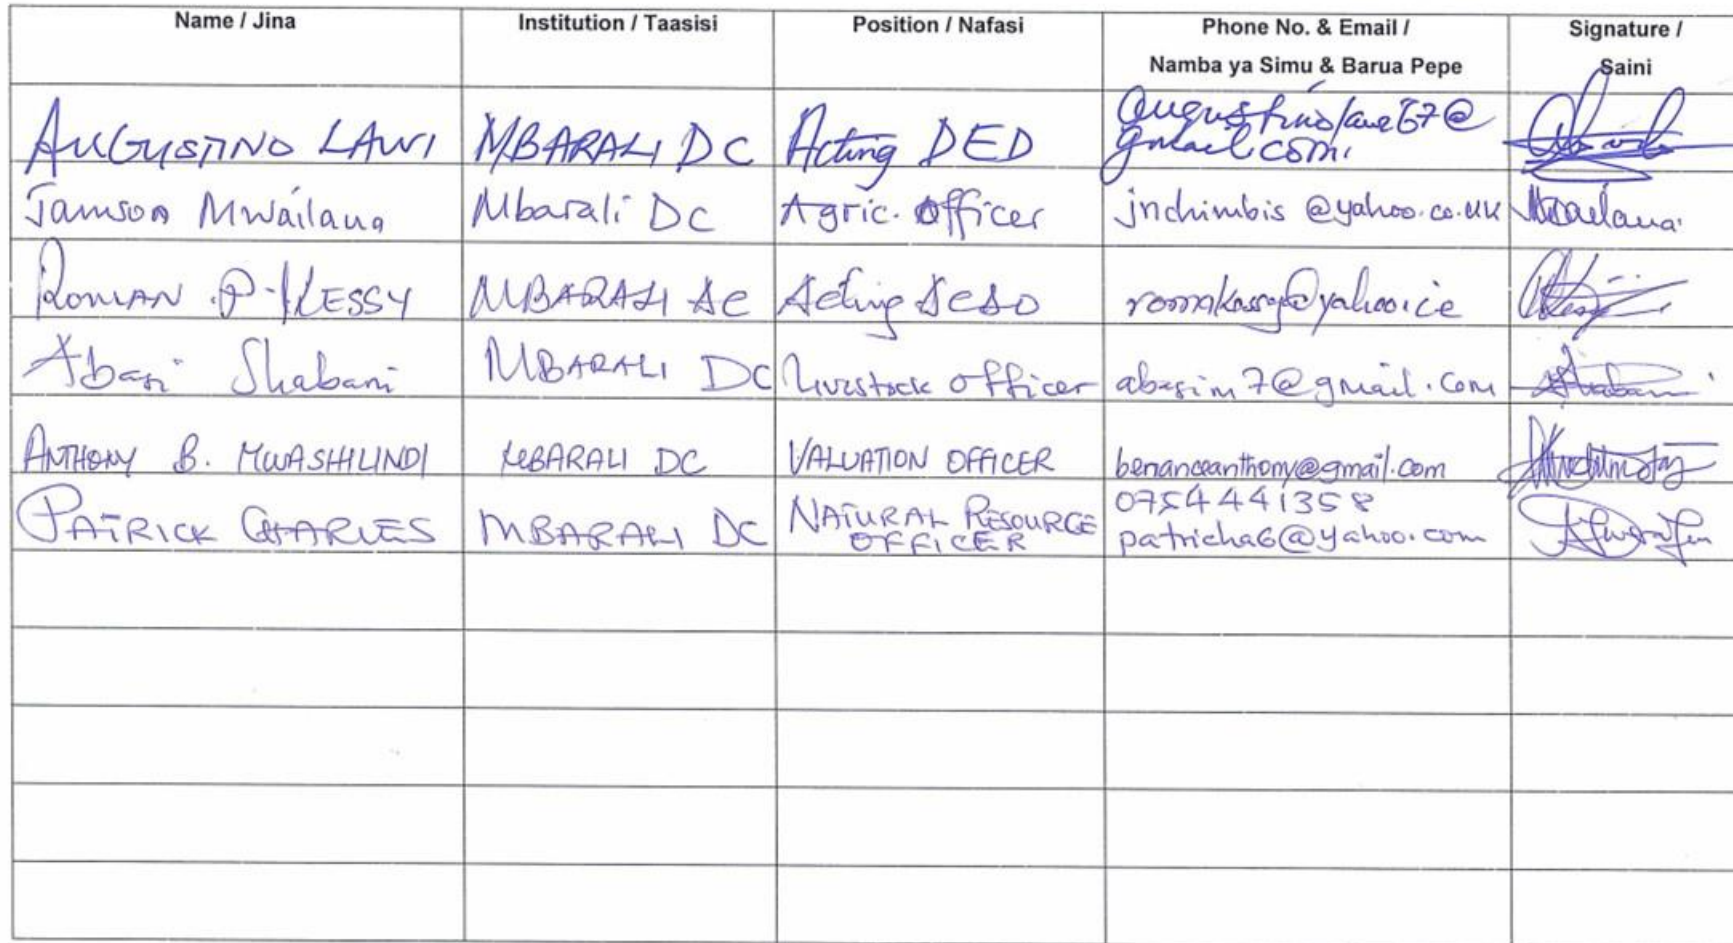 Name / Jina Institution / Taasisi Position / Nafasi Phone No. & Email / Signature /
Namba ya Simu & Barua Pepe Saini
AUGUSTINO LAWI MBARALI DC Acting DED
gmail.com.
Jamson Mwailana Mbarali DC Agric. Officer jnchimbis @yahoo.co.uk Mwailana
ROMAN P. KESSY MBARALI DC Acting
Abasi Shabani MBARALI DC Livestock officer abasim7@gmail.com Shabani
ANTHONY B. MWASHILINDI MBARALI DC VALUATION OFFICER benanceanthony@gmail.com
PATRICK CHARLES MBARALI DC NATURAL RESOURCE 0754441358
OFFICER patricha6@yahoo.com